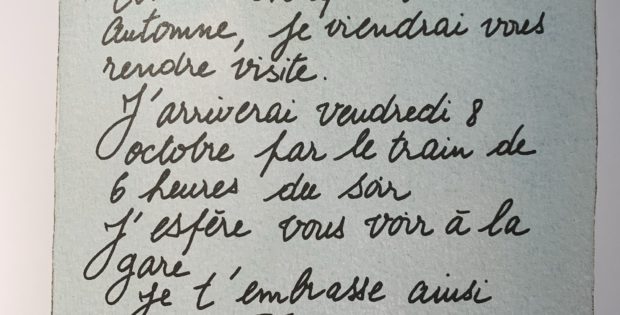 automne, je viendrai vous
rendre visite.
J'arriverai vendredi 8
octobre par le train de
6 heures du soir
J'espère vous voir à la
gare
Je t'embrasse ainsi